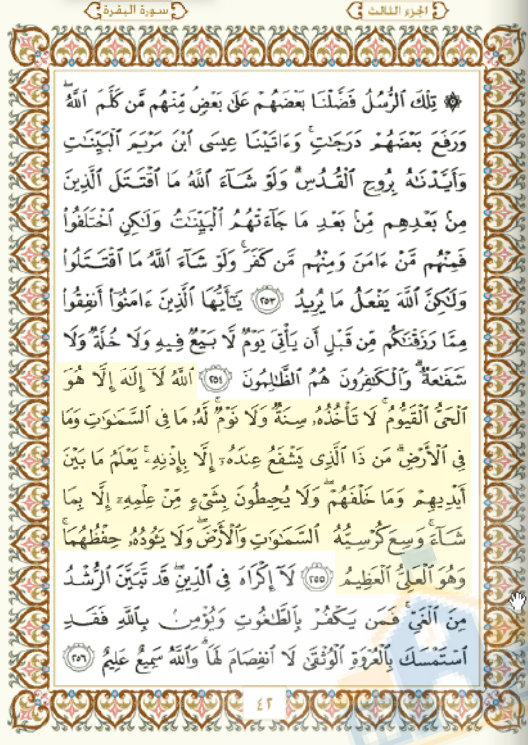 الجزء الثالث
سورة البقرة
۞ تِلْكَ ٱلرُّسُلُ فَضَّلْنَا بَعْضَهُمْ عَلَىٰ بَعْضٍ مِّنْهُم مَّن كَلَّمَ ٱللَّهُ ۖ
وَرَفَعَ بَعْضَهُمْ دَرَجَٰتٍ ۚ وَءَاتَيْنَا عِيسَى ٱبْنَ مَرْيَمَ ٱلْبَيِّنَٰتِ
وَأَيَّدْنَٰهُ بِرُوحِ ٱلْقُدُسِ ۗ وَلَوْ شَآءَ ٱللَّهُ مَا ٱقْتَتَلَ ٱلَّذِينَ
مِنۢ بَعْدِهِم مِّنۢ بَعْدِ مَا جَآءَتْهُمُ ٱلْبَيِّنَٰتُ وَلَٰكِنِ ٱخْتَلَفُوا۟
فَمِنْهُم مَّنْ ءَامَنَ وَمِنْهُم مَّن كَفَرَ ۚ وَلَوْ شَآءَ ٱللَّهُ مَا ٱقْتَتَلُوا۟
وَلَٰكِنَّ ٱللَّهَ يَفْعَلُ مَا يُرِيدُ ٢٥٣ يَٰٓأَيُّهَا ٱلَّذِينَ ءَامَنُوٓا۟ أَنفِقُوا۟
مِمَّا رَزَقْنَٰكُم مِّن قَبْلِ أَن يَأْتِىَ يَوْمٌ لَّا بَيْعٌ فِيهِ وَلَا خُلَّةٌ وَلَا
شَفَٰعَةٌ ۗ وَٱلْكَٰفِرُونَ هُمُ ٱلظَّٰلِمُونَ ٢٥٤ ٱللَّهُ لَآ إِلَٰهَ إِلَّا هُوَ
ٱلْحَىُّ ٱلْقَيُّومُ ۚ لَا تَأْخُذُهُۥ سِنَةٌ وَلَا نَوْمٌ ۚ لَّهُۥ مَا فِى ٱلسَّمَٰوَٰتِ وَمَا
فِى ٱلْأَرْضِ ۗ مَن ذَا ٱلَّذِى يَشْفَعُ عِندَهُۥٓ إِلَّا بِإِذْنِهِۦ ۚ يَعْلَمُ مَا بَيْنَ
أَيْدِيهِمْ وَمَا خَلْفَهُمْ ۖ وَلَا يُحِيطُونَ بِشَىْءٍ مِّنْ عِلْمِهِۦٓ إِلَّا بِمَا
شَآءَ ۚ وَسِعَ كُرْسِيُّهُ ٱلسَّمَٰوَٰتِ وَٱلْأَرْضَ ۖ وَلَا يَـُٔودُهُۥ حِفْظُهُمَا ۚ
وَهُوَ ٱلْعَلِىُّ ٱلْعَظِيمُ ٢٥٥ لَآ إِكْرَاهَ فِى ٱلدِّينِ ۖ قَد تَّبَيَّنَ ٱلرُّشْدُ
مِنَ ٱلْغَىِّ ۚ فَمَن يَكْفُرْ بِٱلطَّٰغُوتِ وَيُؤْمِنۢ بِٱللَّهِ فَقَدِ
ٱسْتَمْسَكَ بِٱلْعُرْوَةِ ٱلْوُثْقَىٰ لَا ٱنفِصَامَ لَهَا ۗ وَٱللَّهُ سَمِيعٌ عَلِيمٌ ٢٥٦
٤٢